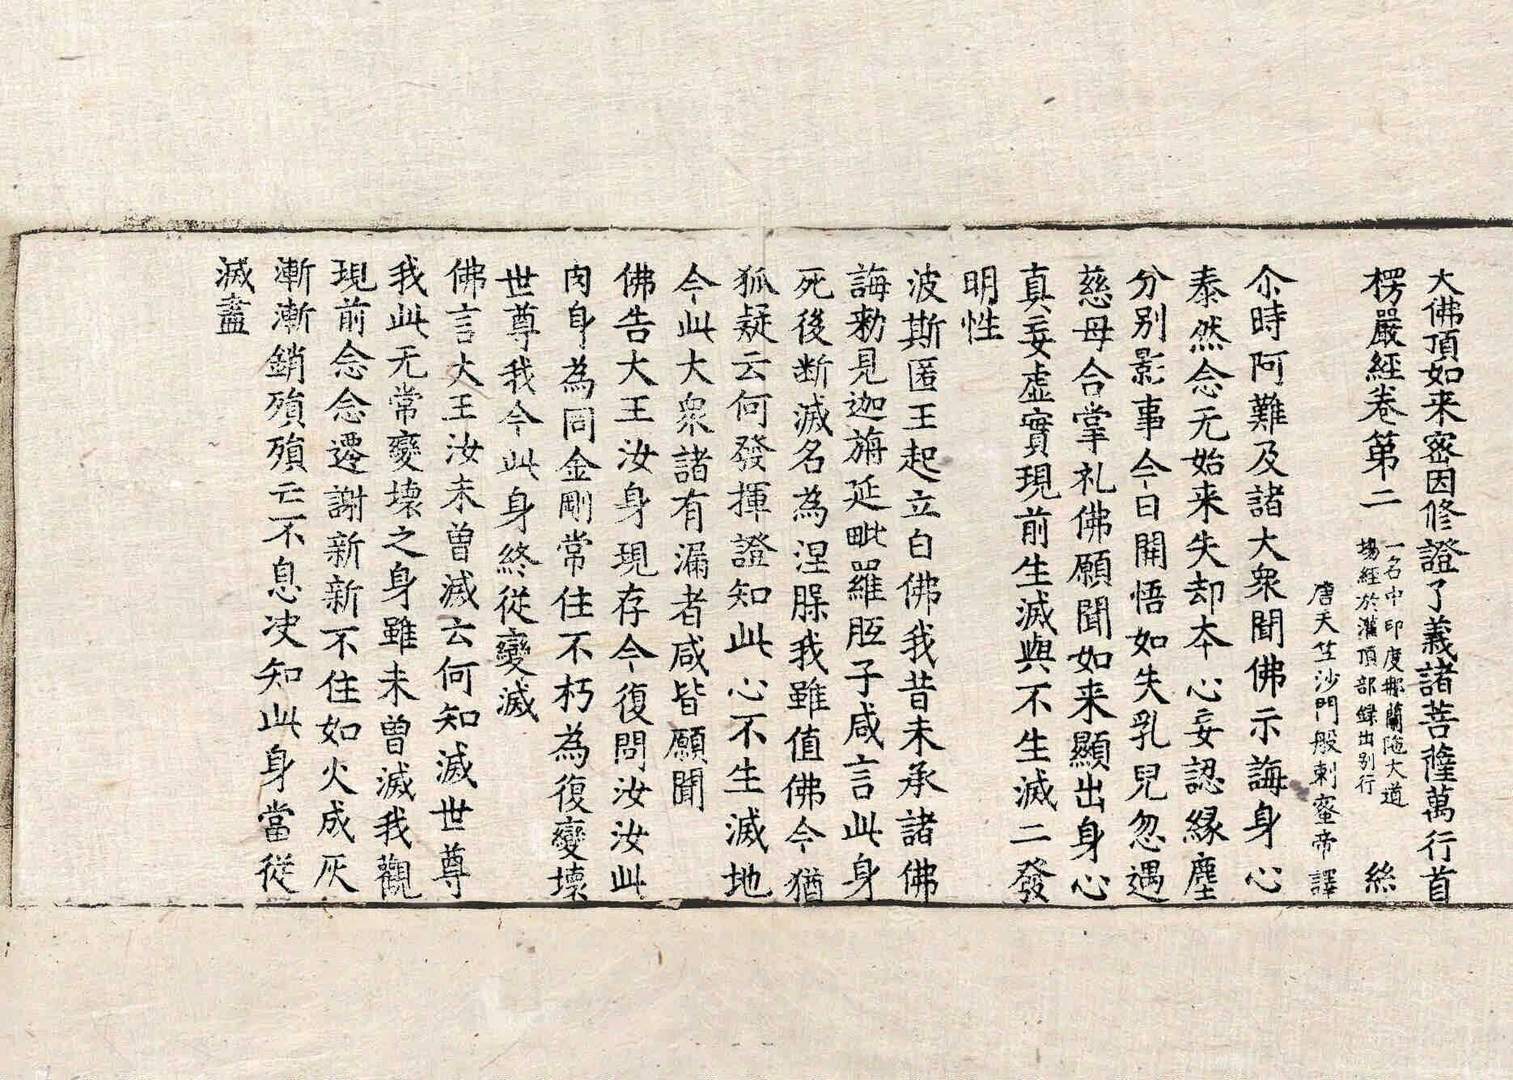 大佛頂如来密因修證了義諸菩薩萬行首
楞嚴經卷第二 一名中印度那蘭陁大道場經於灌頂部録出别行 絲
唐天竺沙門般剌蜜帝譯
尒時阿難及諸大衆聞佛示誨身心
泰然念无始来失却夲心妄認緣塵
分别影事今日開悟如失乳兒忽遇
慈母合掌礼佛願聞如来顯出身心
真妄虚實現前生滅與不生滅二發
明性
波斯匿王起立白佛我昔未承諸佛
誨勑見迦旃延毗羅胝子咸言此身
死後断滅名為涅脵我雖值佛今猶
狐疑云何發揮證知此心不生滅地
今此大衆諸有漏者咸皆願聞
佛告大王汝身現存今復問汝汝此
肉身為同金剛常住不朽為復變壞
世尊我今此身終從變滅
佛言大王汝未曽滅云何知滅世尊
我此无常變壞之身雖未曽滅我觀
現前念念遷謝新新不住如火成灰
漸漸銷殞殞亡不息决知此身當從
滅盡